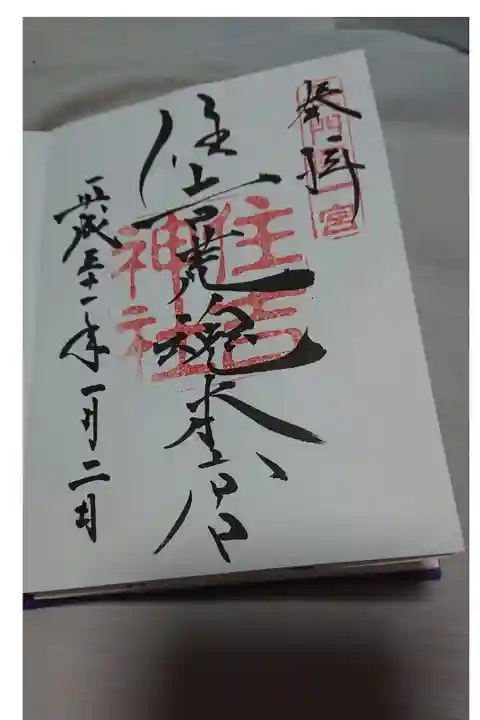 奉拝
長門國一宮
住吉荒魂本宮
住吉
神社
平成三十一年一月二日